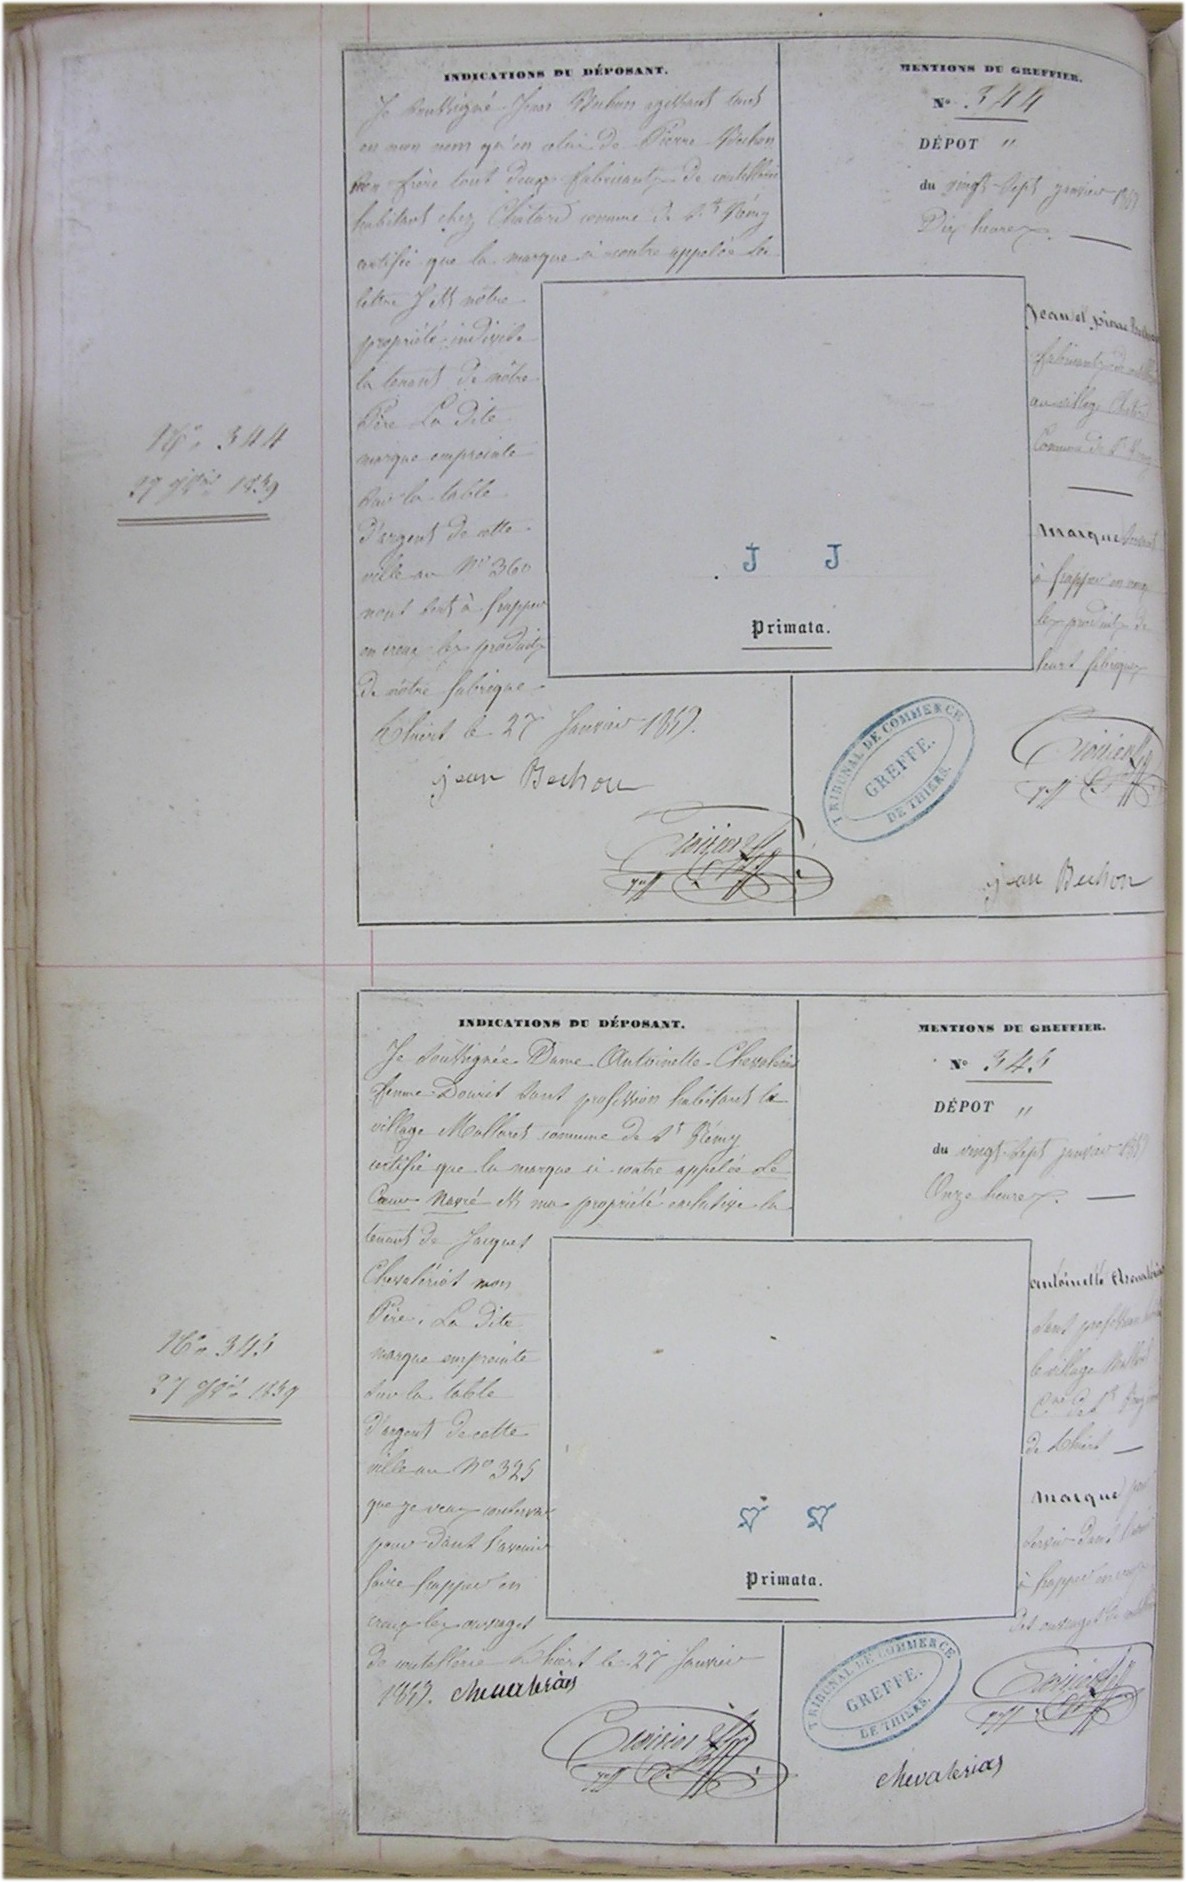 INDICATIONS DU DÉPOSANT.
Je soussigné Jean Bechon agissant tant
en mon nom qu'en celui de Pierre Bechon
mon frère tout deux fabricants de coutellerie
habitant chez Chatard comune de St Rémy
certifie que la marque ci contre appelée la
lettre J est nôtre
propriété indivise
la tenant de nôtre
Père La dite
marque empreinte
sur la table
d'argent de cette
ville au No 360
nout sert à frapper
en creux les produits
de nôtre fabrique
Thiers le 27 Janvier 1859.
jean Bechon
MENTIONS DU GREFFIER.
No 344
DÉPOT "
du vingt sept janvier 1859
Dix heures.
Jean et pierre Bechon
fabricants de
au village Chatard
Comune de St Rémy
Marque servant
à frapper en creux
les produits de
leurs fabriques
J J
Primata.
TRIBUNAL DE COMMERCE
GREFFE.
DE THIERS.
jean Bechon
No. 344
27 Jer 1859
INDICATIONS DU DÉPOSANT.
Je soussignée Dame Antoinette Chevalérias
femme Douris sans profession habitant le
village Mallaret comune de St Rémy
certifie que la marque ci contre appelée Le
Coeur Navré est ma propriété exclusive la
tenant de Jacques
Chevalérias mon
Père. La dite
marque empreinte
sur la table
d'argent de cette
ville au No 325
que je veux conserver
pour dans l'avenir
faire frapper en
creux les ouvrages
de coutellerie Thiers le 27 Janvier
1859. chevalerias
MENTIONS DU GREFFIER.
No 345
DÉPOT "
du vingt sept janvier 1859
Onze heures.
antoinette Chevalérias
sans profession
le village
Cne de St Rémy
de Thiers
Marque pour
servir dans l'avenir
à frapper en creux
des ouvrages de
Primata.
TRIBUNAL DE COMMERCE
GREFFE.
DE THIERS.
chevalerias
No. 345
27 Jer 1859